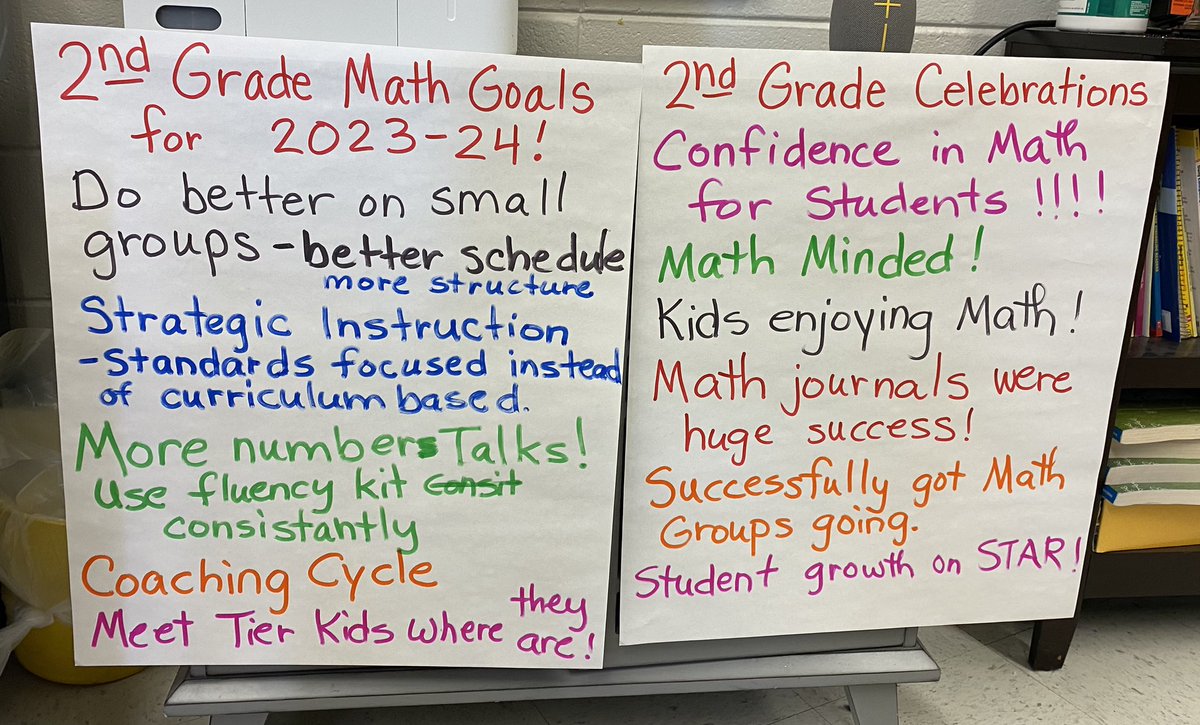 2nd Grade Math Goals
for 2023-24!
Do better on small
groups - better schedule
more structure
Strategic Instruction
- Standards focused instead
of curriculum based.
More numbers Talks!
Use fluency kit consit
consistantly
Coaching Cycle
Meet Tier Kids where they
are!
2nd Grade Celebrations
Confidence in Math
for Students !!!!
Math Minded!
Kids enjoying Math!
Math journals were
huge success!
Successfully got Math
Groups going.
Student growth on STAR!